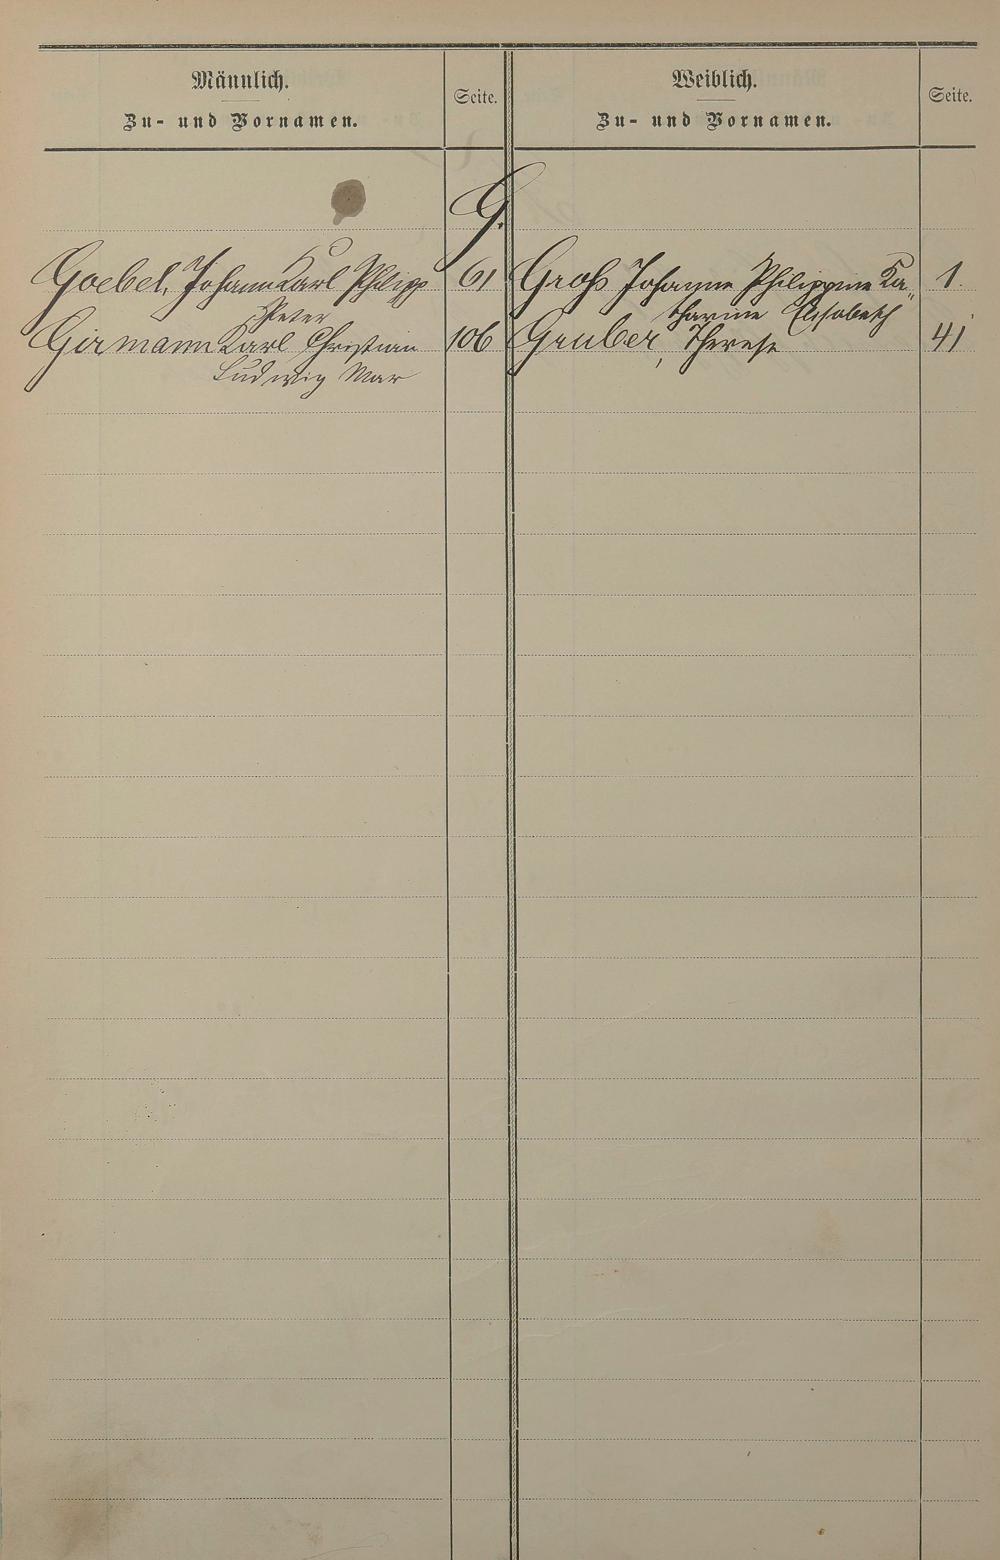 Männlich.
Zu- und Vornamen.
Seite.
Weiblich.
Zu- und Vornamen.
Seite.
G.
Goebel, Johann Karl Philipp 61
Peter
Girmann Karl Christian 106
Ludwig Max
Grohs Johanne Philippine Ka„ 1.
tharine Elisabeth
Gruber, Therese 41